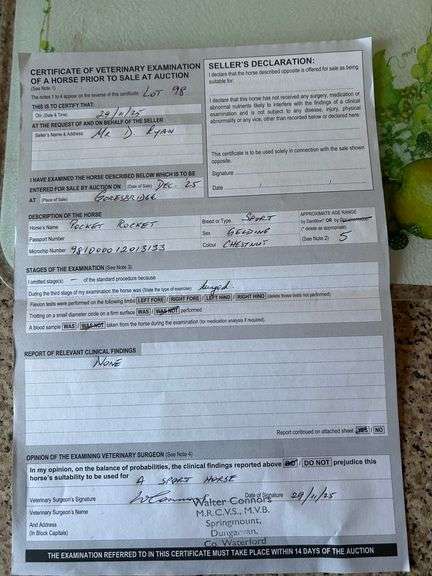 CERTIFICATE OF VETERINARY EXAMINATION
OF A HORSE PRIOR TO SALE AT AUCTION
(See Note 1)
The notes 1 to 4 appear on the reverse of this certificate. LOT 98
THIS IS TO CERTIFY THAT:
On (Date & Time) 29/11/25
AT THE REQUEST OF AND ON BEHALF OF THE SELLER
Seller's Name & Address MR D RYAN
I HAVE EXAMINED THE HORSE DESCRIBED BELOW WHICH IS TO BE
ENTERED FOR SALE BY AUCTION ON (Date of Sale) DEC 25
AT (Place of Sale) GORESBRIDGE
SELLER'S DECLARATION:
I declare that the horse described opposite is offered for sale as being
suitable for:
I declare that this horse has not received any surgery, medication or
abnormal nutrients likely to interfere with the findings of a clinical
examination and is not subject to any disease, injury, physical
abnormality or any vice, other than recorded below or declared here:
This certificate is to be used solely in connection with the sale shown
opposite.
Signature
Date
DESCRIPTION OF THE HORSE
Horse's Name POCKET ROCKET
Passport Number
Microchip Number
Breed or Type SPORT
Sex GELDING
Colour CHESTNUT
APPROXIMATE AGE RANGE
by Dentition* OR by Documentation*
(* delete as appropriate)
(See Note 2) 5
STAGES OF THE EXAMINATION (See Note 3)
I omitted stage(s) - of the standard procedure because
During the third stage of my examination the horse was (State the type of exercise) lunged
Flexion tests were performed on the following limbs LEFT FORE RIGHT FORE LEFT HIND RIGHT HIND (delete those tests not performed)
Trotting on a small diameter circle on a firm surface WAS WAS NOT performed
A blood sample WAS WAS NOT taken from the horse during the examination (for medication analysis if required).
REPORT OF RELEVANT CLINICAL FINDINGS
NONE
Report continued on attached sheet YES NO
OPINION OF THE EXAMINING VETERINARY SURGEON (See Note 4)
In my opinion, on the balance of probabilities, the clinical findings reported above DO DO NOT prejudice this
horse's suitability to be used for A SPORT HORSE
Veterinary Surgeon's Signature
Date of Signature 29/11/25
Veterinary Surgeon's Name
And Address
(In Block Capitals)
Walter Connors
M.R.C.V.S., M.V.B.
Springmount,
Dungarvan,
Co. Waterford
THE EXAMINATION REFERRED TO IN THIS CERTIFICATE MUST TAKE PLACE WITHIN 14 DAYS OF THE AUCTION